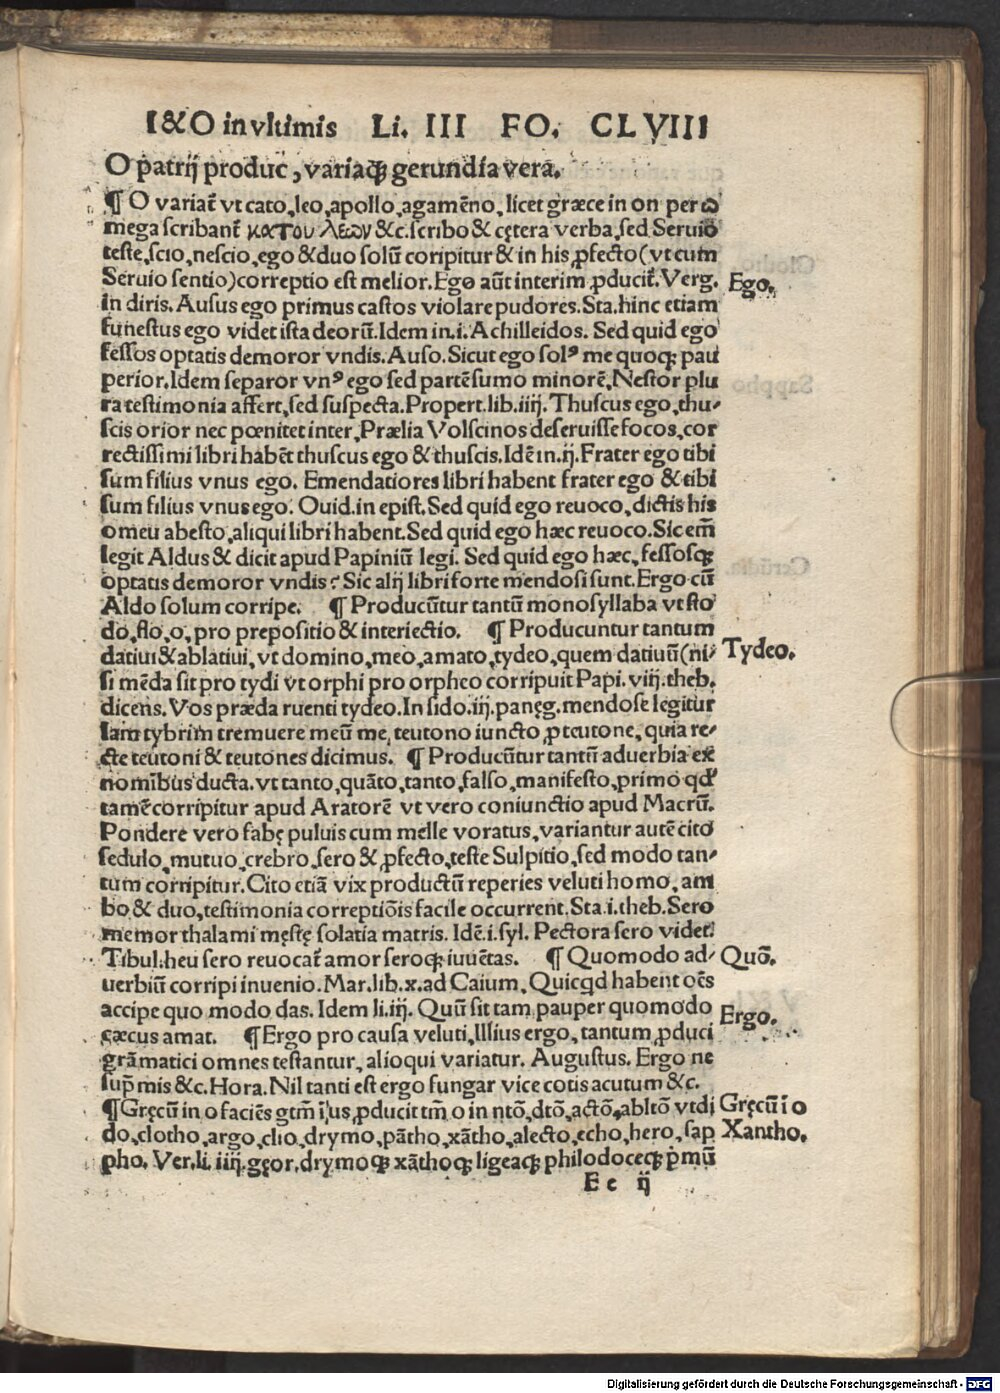 I&O in vltimis Li. III FO. CLVIII
O patrij produc, variaq; gerundia vera.
¶ O variat̃ vt cato, leo, apollo, agamẽno, licet græce in on per ω
mega scribant̃ κατου λεων &c. scribo & cętera verba, sed Seruio
teste, scio, nescio, ego & duo solũ coripitur & in his ꝓfecto (vt cum
Seruio sentio) correptio est melior. Ego aũt interim ꝓducit̃. Verg.
Ego.
in diris. Ausus ego primus castos violare pudores. Sta. hinc etiam
funestus ego videt ista deorũ. Idem in. i. Achilleidos. Sed quid ego
fessos optatis demoror vndis. Auso. Sicut ego solꝰ me quoq; pau
perior. Idem separor vnꝰ ego sed partẽ sumo minorẽ. Nestor plu
ra testimonia affert, sed suspecta. Propert. lib. iiij. Thuscus ego, thu-
scis orior nec pœnitet inter, Prælia Volscinos deseruisse focos, cor
rectissimi libri habẽt thuscus ego & thuscis. Idẽ in. ij. Frater ego tibi
sum filius vnus ego. Emendatiores libri habent frater ego & tibi
sum filius vnus ego. Ouid. in epist. Sed quid ego reuoco, dictis his
omeu abesto, aliqui libri habent. Sed quid ego hæc reuoco. Sic em̃
legit Aldus & dicit apud Papiniũ legi. Sed quid ego hæc, fessosq;
optatis demoror vndis? Sic alij libri forte mendosi sunt. Ergo cũ
Aldo solum corripe. ¶ Producũtur tantũ monosyllaba vt sto
do, flo, o, pro prepositio & interiectio. ¶ Producuntur tantum
datiui & ablatiui, vt domino, meo, amato, tydeo, quem datiuũ (ni-
Tydeo.
si mẽda sit pro tydi vt orphi pro orpheo corripuit Papi. viij. theb.
dicens. Vos præda ruenti tydeo. In sido. iij. panęg. mendose legitur
Iam tybrim tremuere meũ me, teutono iuncto ꝓ teutone, quia re-
cte teutoni & teutones dicimus. ¶ Producũtur tantũ aduerbia ex
nomĩbus ducta. vt tanto, quãto, tanto, falso, manifesto, primo qđ
tamẽ corripitur apud Aratorẽ vt vero coniunctio apud Macrũ.
Pondere vero fabę puluis cum melle voratus, variantur autẽ cito
sedulo, mutuo, crebro, sero & ꝓfecto, teste Sulpitio, sed modo tan-
tum corripitur. Cito etiã vix productũ reperies veluti homo, am
bo & duo, testimonia correptiõis facile occurrent. Sta. i. theb. Sero
memor thalami męstę solatia matris. Idẽ. i. syl. Pectora sero videt.
Tibul. heu sero reuocat̃ amor seroq; iuuẽtas. ¶ Quomodo ad-
Quõ.
uerbiũ corripi inuenio. Mar. lib. x. ad Caium. Quicqd habent oẽs
accipe quo modo das. Idem li. iij. Quũ sit tam pauper quomodo
Ergo.
cæcus amat. ¶ Ergo pro causa veluti, Illius ergo, tantum ꝓduci
grãmatici omnes testantur, alioqui variatur. Augustus. Ergo ne
sup̃mis &c. Hora. Nil tanti est ergo fungar vice cotis acutum &c.
¶ Gręcũ in o faciẽs gtm̃ ĩ us, ꝓducit tm̃ o in ntõ, dtõ, actõ, abltõ vt di
Gręcũ ĩ o
do, clotho, argo, clio, drymo, pãtho, xãtho, alecto, echo, hero, sap
Xantho.
pho. Ver. li. iiij. gęor. drymoq; xãthoq; ligeaq; philodoceq; p̃mũ
Ee ij
Digitalisierung gefördert durch die Deutsche Forschungsgemeinschaft - DFG